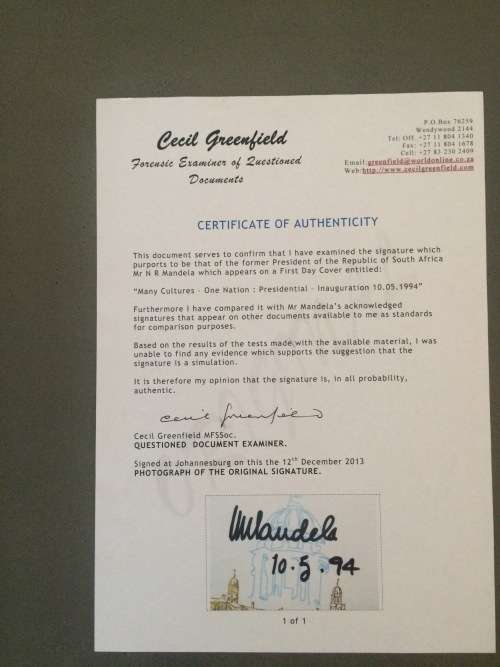 Cecil Greenfield
Forensic Examiner of Questioned
Documents
P.O.Box 76259
Wendywood 2144
Tel: Off. +27 11 804 1340
Fax: +27 11 804 1678
Cell: +27 83 230 2409
Email:greenfield@worldonline.co.za
Web:http://www.cecilgreenfield.com
CERTIFICATE OF AUTHENTICITY
This document serves to confirm that I have examined the signature which
purports to be that of the former President of the Republic of South Africa
Mr N R Mandela which appears on a First Day Cover entitled:
“Many Cultures – One Nation : Presidential – Inauguration 10.05.1994”
Furthermore I have compared it with Mr Mandela’s acknowledged
signatures that appear on other documents available to me as standards
for comparison purposes.
Based on the results of the tests made with the available material, I was
unable to find any evidence which supports the suggestion that the
signature is a simulation.
It is therefore my opinion that the signature is, in all probability,
authentic.
Cecil Greenfield
Cecil Greenfield MFSSoc.
QUESTIONED DOCUMENT EXAMINER.
Signed at Johannesburg on this the 12th December 2013
PHOTOGRAPH OF THE ORIGINAL SIGNATURE.
NMandela
10.5.94
1 of 1